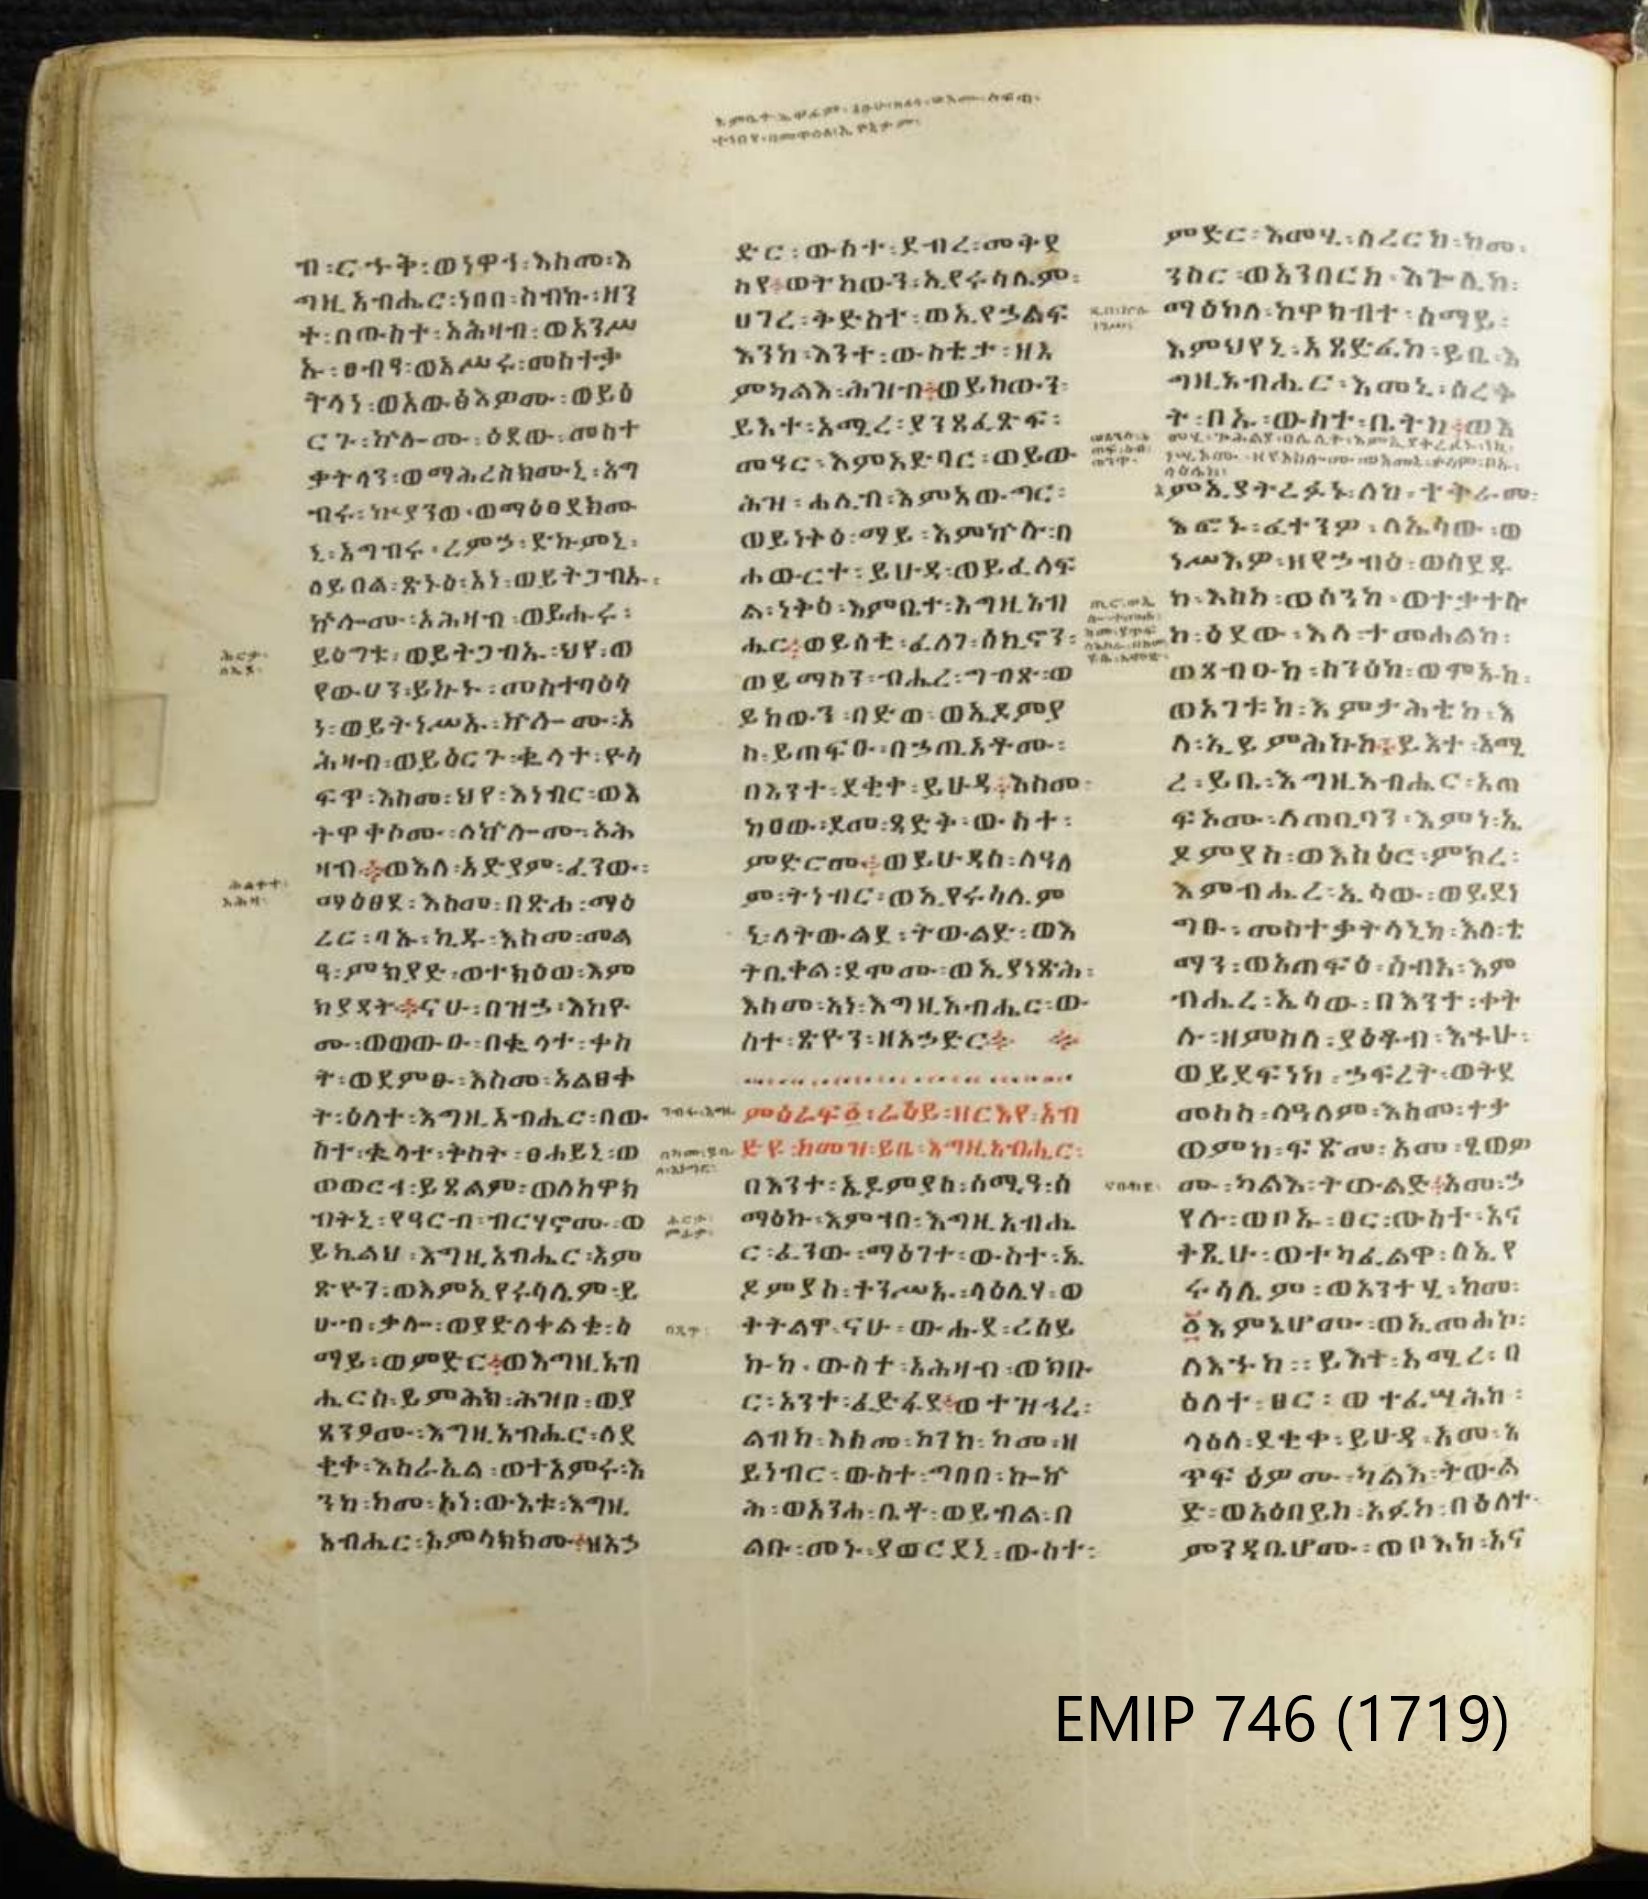 ብ፡ርኁቅ፡ወነዋኅ፡እስመ፡እ
ግዚአብሔር፡ነበበ፡ስብኩ፡ዘን
ተ፡በውስተ፡አሕዛብ፡ወአንሥ
ኡ፡ፀብዓ፡ወአሥሩ፡መስተቃ
ትላነ፡ወአውፅእዎሙ፡ወይዕ
ርጉ፡ኵሎሙ፡ዕደው፡መስተ
ቃትላን፡ወማሕረስክሙኒ፡አግ
ብሩ፡ኵያንወ፡ወማዕፀደክሙ
ኒ፡አግብሩ፡ረምኃ፡ድኩምኒ፡
ዕይበል፡ጽኑዕ፡አነ፡ወይትጋብኡ፡
ኵሎሙ፡አሕዛብ፡ወይሑሩ፡
ይዕግቱ፡ወይትጋብኡ፡ህየ፡ወ
የውሀን፡ይኩኑ፡መስተባዕሳ
ነ፡ወይትነሥኡ፡ኵሎሙ፡አ
ሕዛብ፡ወይዕርጉ፡ቈላተ፡ዮሳ
ፍጥ፡እስመ፡ህየ፡እነብር፡ወእ
ትዋቀሶሙ፡ለኵሎሙ፡አሕ
ዛብ፨ወእለ፡አድያም፡ፈንው፡
ማዕፀደ፡እስመ፡በጽሐ፡ማዕ
ረር፡ባኡ፡ኪዱ፡እስመ፡መል
ዓ፡ምክያድ፡ወተክዕወ፡እም
ክያዳት፨ናሁ፡በዝኃ፡እከዮ
ሙ፡ወወውዑ፡በቈላተ፡ቀስ
ት፡ወደምፁ፡እስመ፡አልፀቀ
ት፡ዕለተ፡እግዚአብሔር፡በው
ስተ፡ቈላተ፡ቅስት፡ፀሐይኒ፡ወ
ወወርኅ፡ይጸልም፡ወለከዋክ
ብትኒ፡የዓርብ፡ብርሃኖሙ፡ወ
ይኬልህ፡እግዚአብሔር፡እም
ጽዮን፡ወእምኢየሩሳሌም፡ይ
ሁብ፡ቃሎ፡ወያድለቀልቁ፡ሰ
ማይ፡ወምድር፨ወእግዚአብ
ሔርሰ፡ይምሕክ፡ሕዝቦ፡ወያ
ጸንዖሙ፡እግዚአብሔር፡ለደ
ቂቀ፡እስራኤል፡ወተአምሩ፡እ
ንከ፡ከመ፡አነ፡ውእቱ፡እግዚ
አብሔር፡አምላክክሙ፨ዘአኃ
ድር፡ውስተ፡ደብረ፡መቅደ
ስየ፨ወትከውን፡ኢየሩሳሌም፡
ሀገረ፡ቅድስተ፡ወኢየኃልፍ
እንከ፡እንተ፡ውስቴታ፡ዘእ
ምካልእ፡ሕዝብ፨ወይከውን፡
ይእተ፡አሚረ፡ያንጸፈጽፍ፡
መዓር፡እምአድባር፡ወይው
ሕዝ፡ሐሊብ፡እምአውግር፡
ወይነቅዕ፡ማይ፡እምኵሉ፡በ
ሐውርተ፡ይሁዳ፡ወይፈለፍ
ል፡ነቅዕ፡እምቤተ፡እግዚአብ
ሔር፨ወይሰቂ፡ፈለገ፡ሰኪኖን፡
ወይማስን፡ብሔረ፡ግብጽ፡ወ
ይከውን፡በድወ፡ወኤዶምያ
ስ፡ይጠፍዑ፡በኃጢአቶሙ፡
በእንተ፡ደቂቀ፡ይሁዳ፨እስመ
ከዐው፡ደመ፡ጻድቅ፡ውስተ፡
ምድሮሙ፨ወይሁዳስ፡ለዓለ
ም፡ትነብር፡ወኢየሩሳሌም
ኒ፡ለትውልደ፡ትውልድ፡ወእ
ትቤቀል፡ደሞሙ፡ወኢያነጽሕ፡
እስመ፡አነ፡እግዚአብሔር፡ው
ስተ፡ጽዮን፡ዘአኃድር፨ ፨
ምዕራፍ፩፡ራዕይ፡ዘርእየ፡አብ
ድዩ፡ከመዝ፡ይቤ፡እግዚአብሔር፡
በእንተ፡ኤዶምያስ፡ሰሚዓ፡ሰ
ማዕኩ፡እምኀበ፡እግዚአብሔ
ር፡ፈነው፡ማዕገተ፡ውስተ፡ኤ
ዶምያስ፡ተንሥኡ፡ላዕሌሃ፡ወ
ትትልዋ፡ናሁ፡ውሑደ፡ረሰይ
ኩከ፡ውስተ፡አሕዛብ፡ወክቡ
ር፡አንተ፡ፈድፋደ፨ወተዝኅረ፡
ልብከ፡እስመ፡ኮንከ፡ከመ፡ዘ
ይነብር፡ውስተ፡ግበበ፡ኰኵ
ሕ፡ወአንሐ፡ቤቶ፡ወይብል፡በ
ልቡ፡መኑ፡ያወርደኒ፡ውስተ፡
ምድር፡እመሂ፡ሰረርከ፡ከመ፡
ንስር፡ወአንበርከ፡እጐሊከ፡
ማዕከለ፡ከዋክብተ፡ሰማይ፡
እምህየኒ፡አጸድፈከ፡ይቤ፡እ
ግዚአብሔር፡እመኒ፡ሰረቅ
ት፡ቦኡ፡ውስተ፡ቤትከ፨ወእ
እምኢያትረፉኑ፡ለከ፡ተቅራመ፡
እፎኑ፡ፈተንዎ፡ለኤሳው፡ወ
ነሥእዎ፡ዘየኃብዕ፡ወሰደዱ
ከ፡እስከ፡ወሰንከ፡ወተቃተሉ
ከ፡ዕደው፡እለ፡ተመሐልከ፡
ወጸብዑከ፡ከንዕከ፡ወሞኡከ፡
ወአገቱከ፡እምታሕቴከ፡እ
ለ፡ኢይምሕኩከ፨ይእተ፡አሚ
ረ፡ይቤ፡እግዚአብሔር፡አጠ
ፍኦሙ፡ለጠቢባን፡እምነ፡ኤ
ዶምያስ፡ወእስዕር፡ምክረ፡
እምብሔረ፡ኤሳው፡ወይደነ
ግፁ፡መስተቃትላኒከ፡እለ፡ቴ
ማን፡ወአጠፍዕ፡ሰብአ፡እም
ብሔረ፡ኤሳው፡በእንተ፡ቀት
ሉ፡ዘምስለ፡ያዕቆብ፡እኁሁ፡
ወይደፍነከ፡ኃፍረት፡ወትደ
መሰስ፡ለዓለም፡እስመ፡ተቃ
ወምከ፡ፍጽመ፡አመ፡ፄወዎ
ሙ፡ካልእ፡ትውልድ፨እመ፡ኃ
የሉ፡ወቦኡ፡ፀር፡ውስተ፡አና
ትጺሁ፡ወተካፈልዋ፡ለኢየ
ሩሳሌም፡ወአንተሂ፡ከመ፡
፩እምኔሆሙ፡ወኢመሐኮ፡
ለእኁከ፡፡ይእተ፡አሚረ፡በ
ዕለተ፡ፀር፡ወተፈሣሕከ፡
ላዕለ፡ደቂቀ፡ይሁዳ፡አመ፡አ
ጥፍዕዎሙ፡ካልእ፡ትውል
ድ፡ወአዕበይከ፡አፉከ፡በዕለተ፡
ምንዳቤሆሙ፡ወቦእከ፡አና
EMIP 746 (1719)